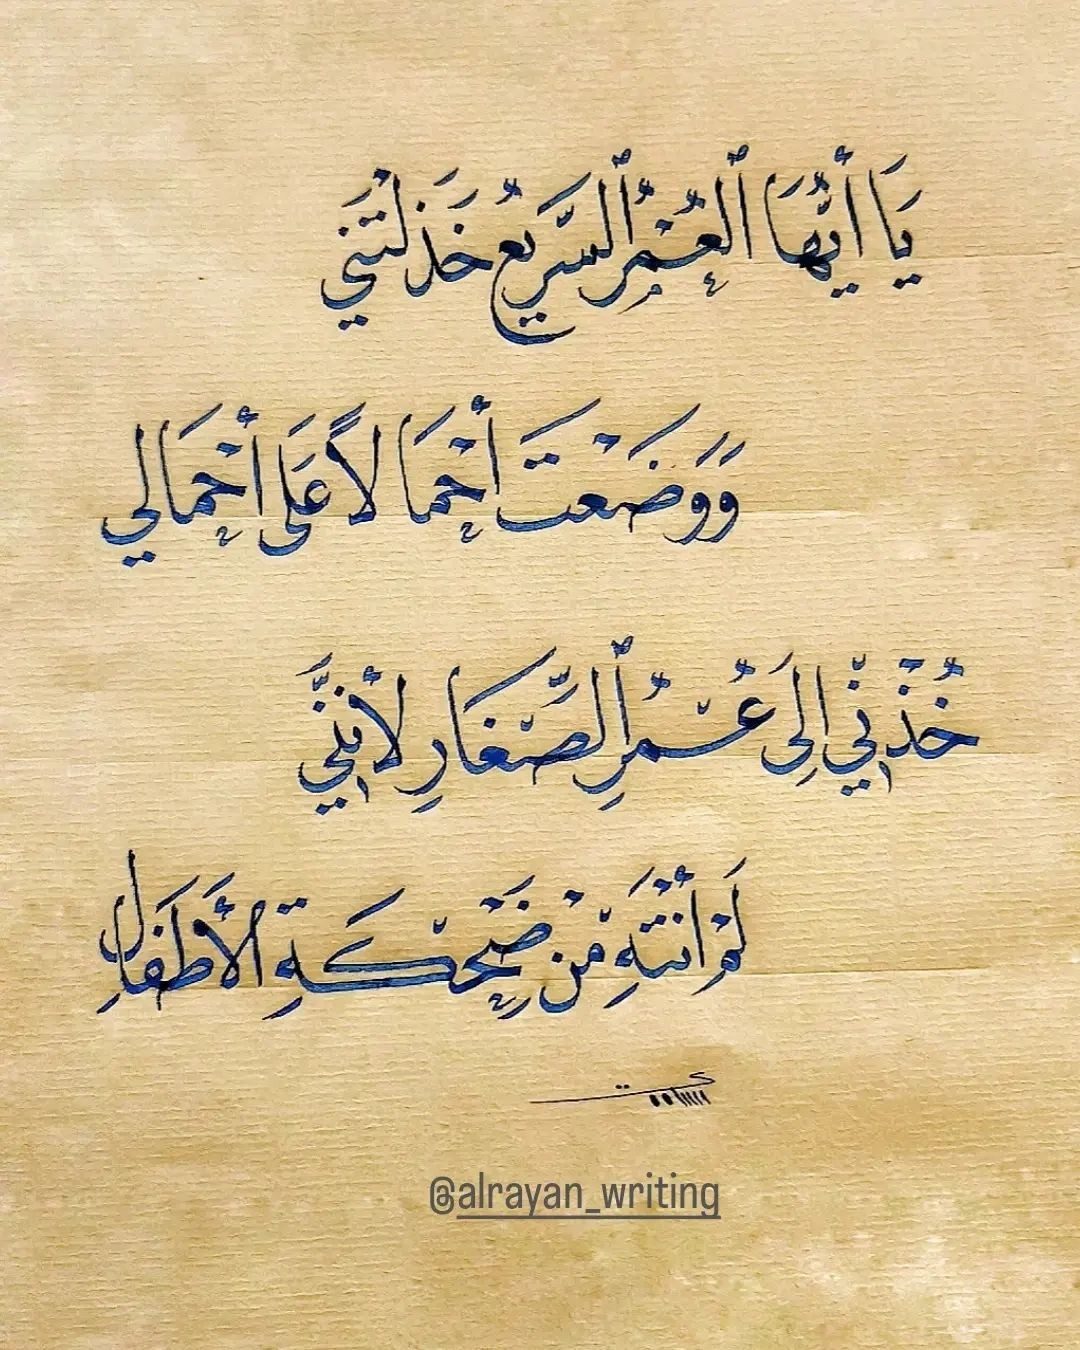 يَا أَيُّهَا ٱلْعُمْرُ ٱلسَّرِيعُ خَذَلْتَنِي
وَوَضَعْتَ أَحْمَالًا عَلَى أَحْمَالِي
خُذْنِي إلَى عُمْرِ ٱلصِّغَارِ لِأنَّنِي
لَمْ أَنْتَهِ مِنْ ضِحْكَةِ الْأَطْفَالِ
@alrayan_writing